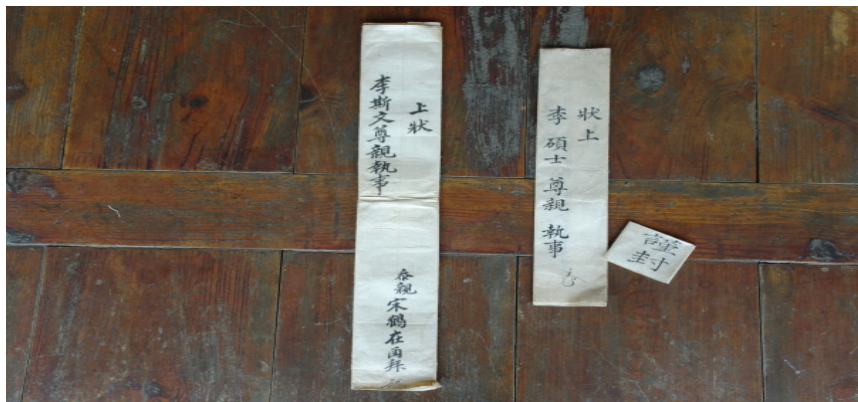 上狀
李斯文尊親執事
忝親 宋鶴在 拜
狀上
李 碩士 尊親 執事
謹封